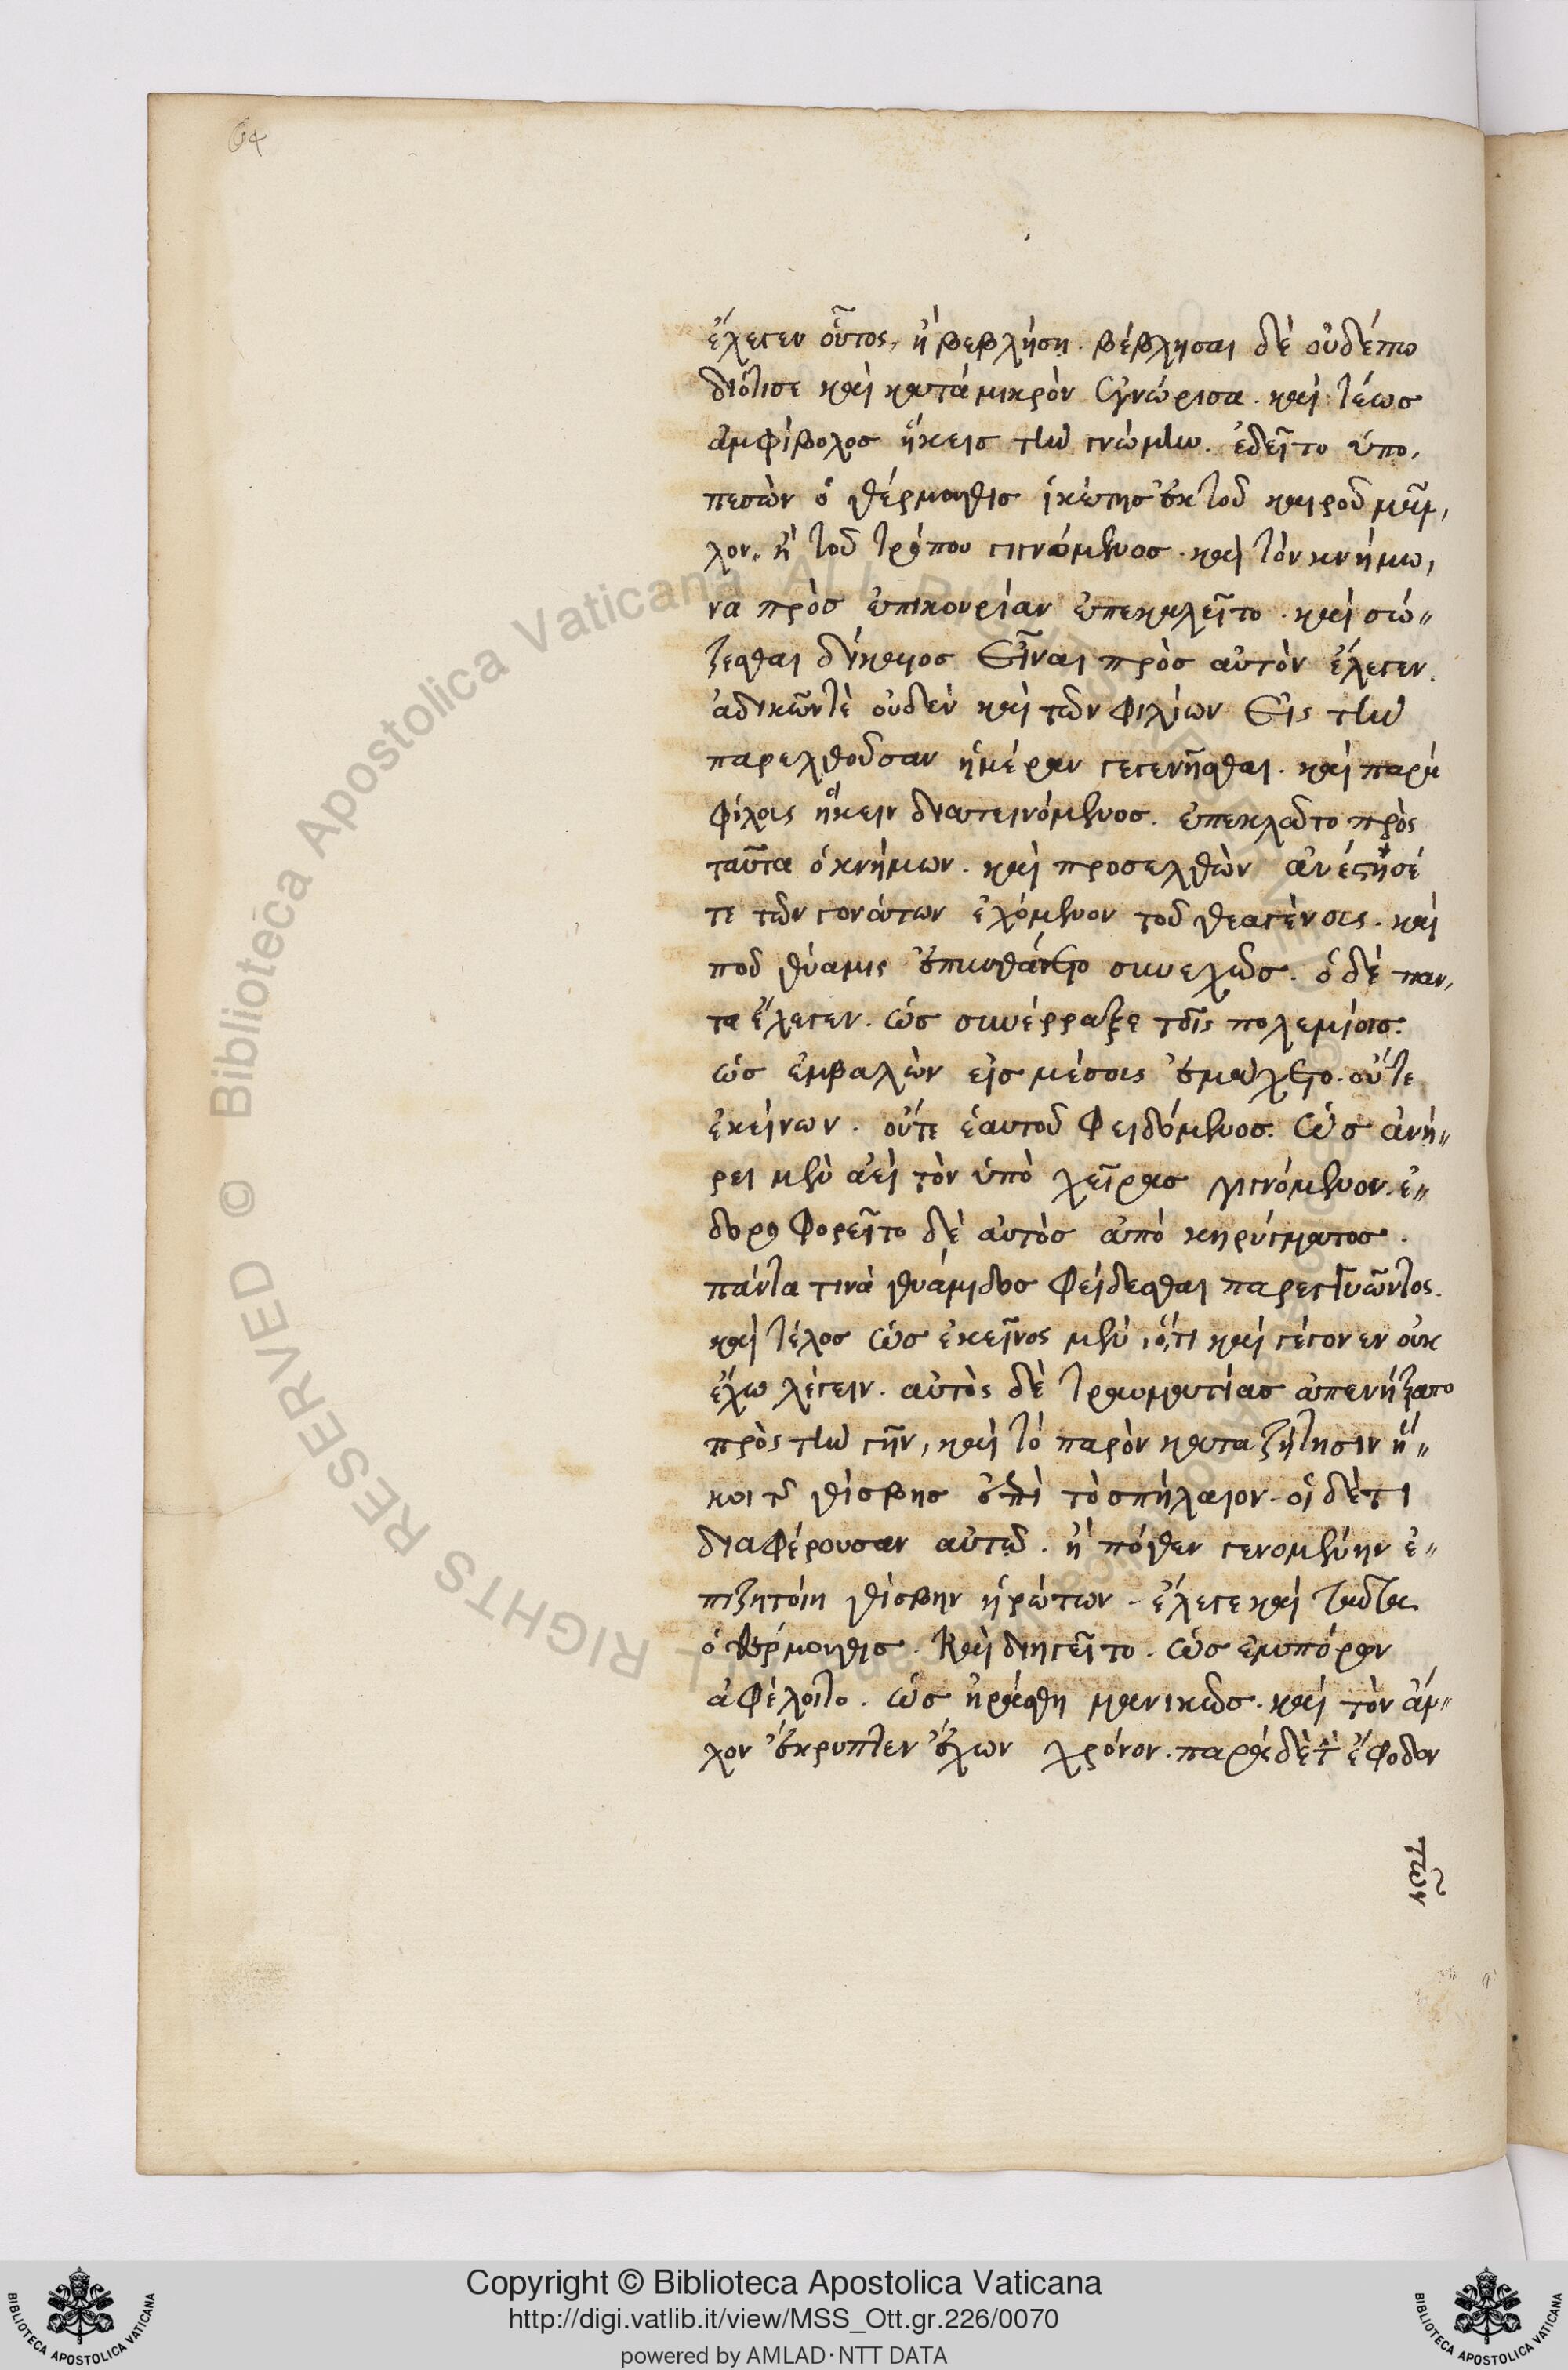 64
ἔλεγεν οὗτος, ἢ βεβλήσῃ. βέβλησαι δὲ οὐδέπω
διότι σε καὶ κατὰ μικρὸν ἐγνώρισα. καὶ τέως
ἀμφίβολος ἥκεις τὴν γνώμην. ἐδεῖτο ὑπο,
πεσὼν ὁ θέρμουθις ἱκέτης ἐκ τοῦ καιροῦ μᾶλ,
λον, ἢ τοῦ τρόπου γινόμενος. καὶ τὸν κνήμω,
να πρὸς ἐπικουρίαν ἐπεκαλεῖτο. καὶ σώ,,
ζεσθαι δίκαιος εἶναι πρὸς αὐτὸν ἔλεγεν.
ἀδικῶν τὲ οὐδὲν καὶ τῶν φιλίων εἰς τὴν
παρελθοῦσαν ἡμέραν γεγενῆσθαι. καὶ παρὰ
φίλοις ἥκειν διατεινόμενος. ἐπεκλᾶτο πρὸς
ταῦτα ὁ κνήμων. καὶ προσελθὼν ἀνέστησέ
τε τῶν γονάτων ἐχόμενον τοῦ θεαγένους. καὶ
ποῦ θύαμις ἐπυνθάνετο συνεχῶς. ὁ δὲ παν,
τα ἔλεγεν. ὡς συνέρραξε τοῖς πολεμίοις.
ὡς ἐμβαλὼν εἰς μέσους ἐμάχετο. οὔτε
ἐκείνων. οὔτε ἑαυτοῦ φειδόμενος. ὡς ἀνή,,
ρει μὲν ἀεὶ τὸν ὑπὸ χεῖρας γινόμενον. ἐ,,
δορυφορεῖτο δὲ αὐτὸς ἀπὸ κηρύγματος.
πάντα τινὰ θυάμιδος φείδεσθαι παρεγγυῶντος.
καὶ τέλος ὡς ἐκεῖνος μὲν, ὅ,τι καὶ γέγονεν οὐκ
ἔχω λέγειν. αὐτὸς δὲ τραυματίας ἀπενήξατο
πρὸς τὴν γῆν, καὶ τὸ παρὸν κατα ζήτησιν ἥ,,
κοι τῆς θίσβης ἐπὶ τὸ σπήλαιον. οἱ δὲ τι
διαφέρουσαν αὐτῷ. ἢ πόθεν γενομένην ἐ,,
πιζητοίη θίσβην ἠρώτων. ἔλεγε καὶ ταῦτα
ὁ θέρμουθις. καὶ διηγεῖτο. ὡς ἐμπόρων
ἀφέλοιτο. ὡς ἠράσθη μανικῶς. καὶ τὸν ἄλ,,
λον ἔκρυπτεν ἔχων χρόνον. παρὰ δὲ τὴν ἔφοδον
τῶν
Copyright © Biblioteca Apostolica Vaticana
http://digi.vatlib.it/view/MSS_Ott.gr.226/0070
powered by AMLAD·NTT DATA